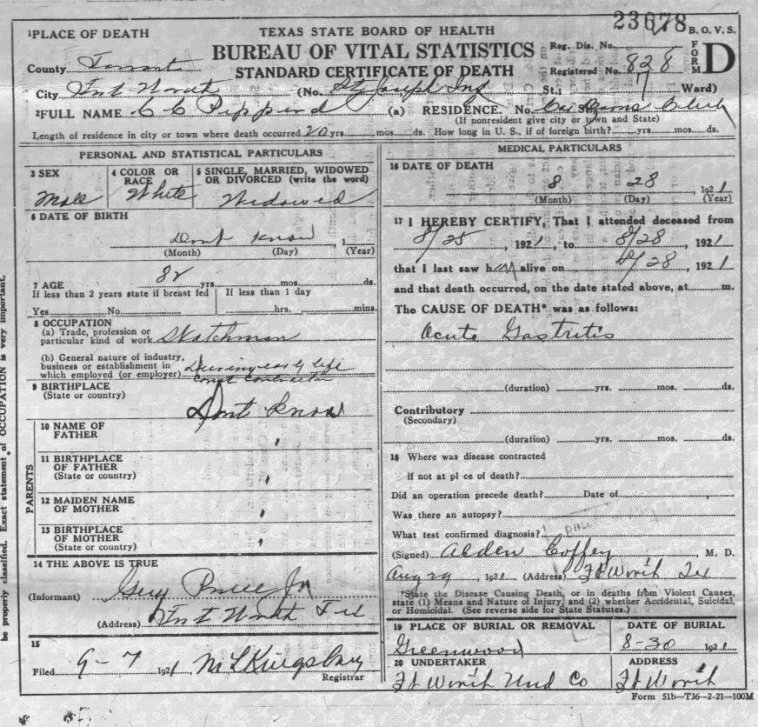 23678 B.O.V.S.
1 PLACE OF DEATH
TEXAS STATE BOARD OF HEALTH
BUREAU OF VITAL STATISTICS
STANDARD CERTIFICATE OF DEATH
Reg. Dis. No.
Registered No. 828
FORM D
County Tarrant
City Fort Worth (No. St Joseph Inf St.; 7 Ward)
2 FULL NAME C C Pippard (a) RESIDENCE. No.
(If nonresident give city or town and State)
Length of residence in city or town where death occurred 20 yrs. mos. ds. How long in U. S., if of foreign birth? yrs. mos. ds.
PERSONAL AND STATISTICAL PARTICULARS
3 SEX
Male
4 COLOR OR RACE
White
5 SINGLE, MARRIED, WIDOWED OR DIVORCED (write the word)
Widowed
6 DATE OF BIRTH
Dont Know, 1
(Month) (Day) (Year)
7 AGE
82 yrs. mos. ds.
If less than 2 years state if breast fed
Yes No
If less than 1 day
hrs. mins.
8 OCCUPATION
(a) Trade, profession or
particular kind of work Watchman
(b) General nature of industry,
business or establishment in
which employed (or employer) During early life
9 BIRTHPLACE
(State or country)
Dont Know
PARENTS
10 NAME OF FATHER "
11 BIRTHPLACE OF FATHER (State or country) "
12 MAIDEN NAME OF MOTHER "
13 BIRTHPLACE OF MOTHER (State or country) "
14 THE ABOVE IS TRUE
(Informant) Guy Price Jr
(Address) Fort Worth Tex
15
Filed 9-7 1921 M L Kingsbury
Registrar
MEDICAL PARTICULARS
16 DATE OF DEATH
8 28, 1921
(Month) (Day) (Year)
17 I HEREBY CERTIFY, That I attended deceased from
8/25, 1921, to 8/28, 1921
that I last saw him alive on 8/28, 1921
and that death occurred, on the date stated above, at m.
The CAUSE OF DEATH* was as follows:
Acute Gastritis
(duration) yrs. mos. ds.
Contributory
(Secondary)
(duration) yrs. mos. ds.
18 Where was disease contracted
if not at pl ce of death?
Did an operation precede death? Date of
Was there an autopsy?
What test confirmed diagnosis?
(Signed) Alden Coffey, M. D.
Aug 29, 1921 (Address) Ft Worth Tex
*State the Disease Causing Death, or in deaths from Violent Causes,
state (1) Means and Nature of Injury; and (2) whether Accidental, Suicidal,
or Homicidal. (See reverse side for State Statutes.)
19 PLACE OF BURIAL OR REMOVAL
Greenwood
DATE OF BURIAL
8-30 1921
20 UNDERTAKER
Ft Worth Und Co
ADDRESS
Ft Worth
Form 51b—T36—2-21—100M
be properly classified. Exact statement of OCCUPATION is very important.